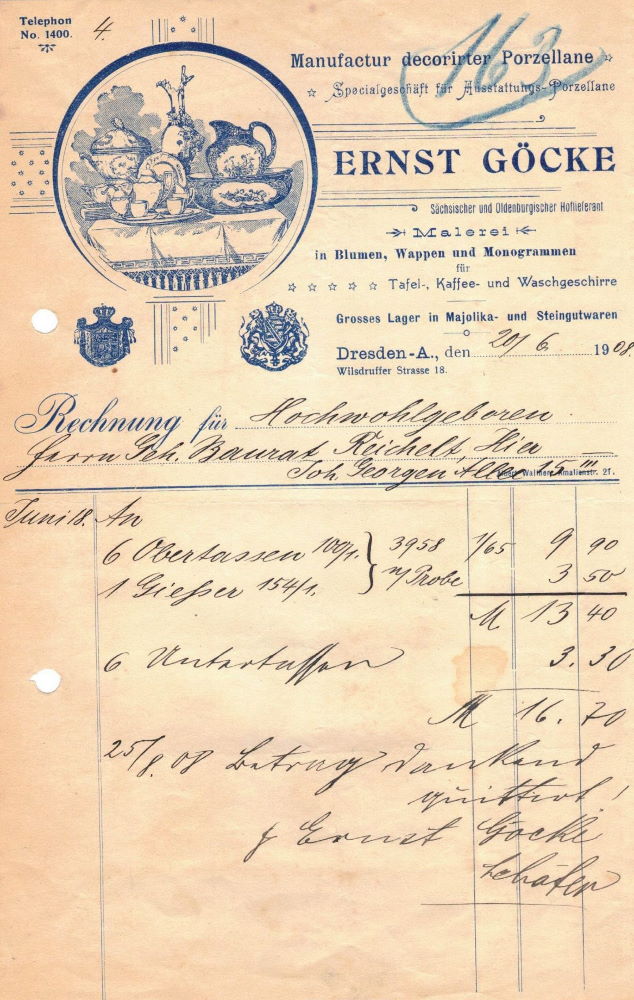 Telephon
No. 1400.
4.
163
Manufactur decorirter Porzellane
Specialgeschäft für Ausstattungs-Porzellane
ERNST GÖCKE
Sächsischer und Oldenburgischer Hoflieferant
Malerei
in Blumen, Wappen und Monogrammen
für
Tafel-, Kaffee- und Waschgeschirre
Grosses Lager in Majolika- und Steingutwaren
Dresden-A., den 20/6. 1908.
Wilsdruffer Strasse 18.
Rechnung für Hochwohlgeboren
Herrn Geh. Baurat Reichelt, Hier
Joh. Georgen Allee 15 III
Amalienstr. 21.
Juni 18. An
6 Obertassen 100/1. 3958 1/65 9 90
1 Giesser 154/1. n/Probe 3 50
M 13 40
6 Untertassen 3.30
M 16.70
25/8.08 Betrag dankend
quittirt!
Ernst Göcke
Schäfer